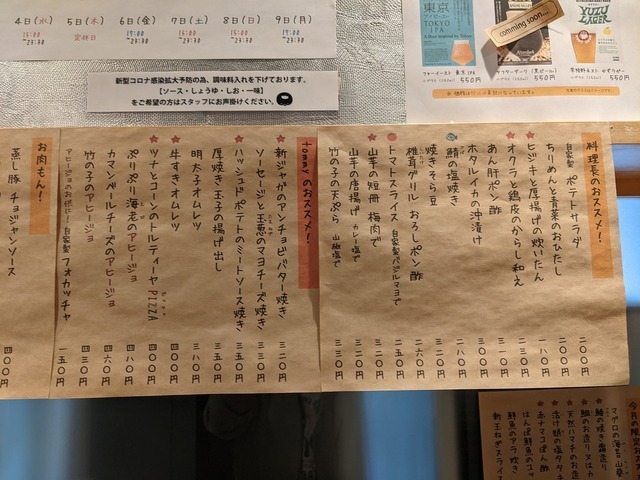 4日(水)
15:00
~23:30
5日(木)
定休日
6日(金)
17:00
~23:30
7日(土)
15:00
~23:30
8日(日)
15:00
~23:30
9日(月)
15:00
~23:30
新型コロナ感染拡大予防の為、調味料入れを下げております。
【ソース・しょうゆ・しお・一味】
をご希望の方はスタッフにお声掛けください。
東京
アイピーエー
TOKYO
IPA
comming soon...
YUZU
LAGER
ファーイースト 東京IPA
550円
アフターダーク(黒ビール)
550円
常陸野ネスト ゆずラガー
550円
料理長のおススメ!
自家製 ポテトサラダ 二〇〇円
ちりめんと青菜のおひたし 二〇〇円
ヒジキと厚揚げの炊いたん 一八〇円
オクラと鶏皮のからし和え 二三〇円
あん肝ポン酢
ホタルイカの沖漬け
鯖の塩焼き 二八〇円
焼きそら豆
椎茸グリル おろしポン酢 二六〇円
トマトスライス 自家製バジルマヨで 二五〇円
山芋の短冊 梅肉で
山芋の唐揚げ カレー塩で
竹の子の天ぷら 山椒塩で 三三〇円
tommyのおススメ!
新ジャガのアンチョビバター焼き 三二〇円
ソーセージと玉葱のマヨチーズ焼き 三三〇円
ハッシュドポテトのミートソース焼き 三五〇円
厚焼き玉子の揚げ出し 三五〇円
明太子オムレツ 三八〇円
牛すきオムレツ 四二〇円
ツナとコーンのトルティーヤPIZZA 四〇〇円
ぷりぷり海老のアヒージョ 四八〇円
カマンベールチーズのアヒージョ 四六〇円
竹の子のアヒージョ 四三〇円
アヒージョのお供に!自家製フォカッチャ 一五〇円
お肉もん!
蒸し豚 チョジャンソース 四〇〇円
今月の限定おスス
マグロの海苔山葵
鰆の焼き霜造り
天然ハマチのお造
活け蛸の塩タタキ
赤ナマコぽん酢
鮮魚のアラ炊き
新玉ねぎスライス